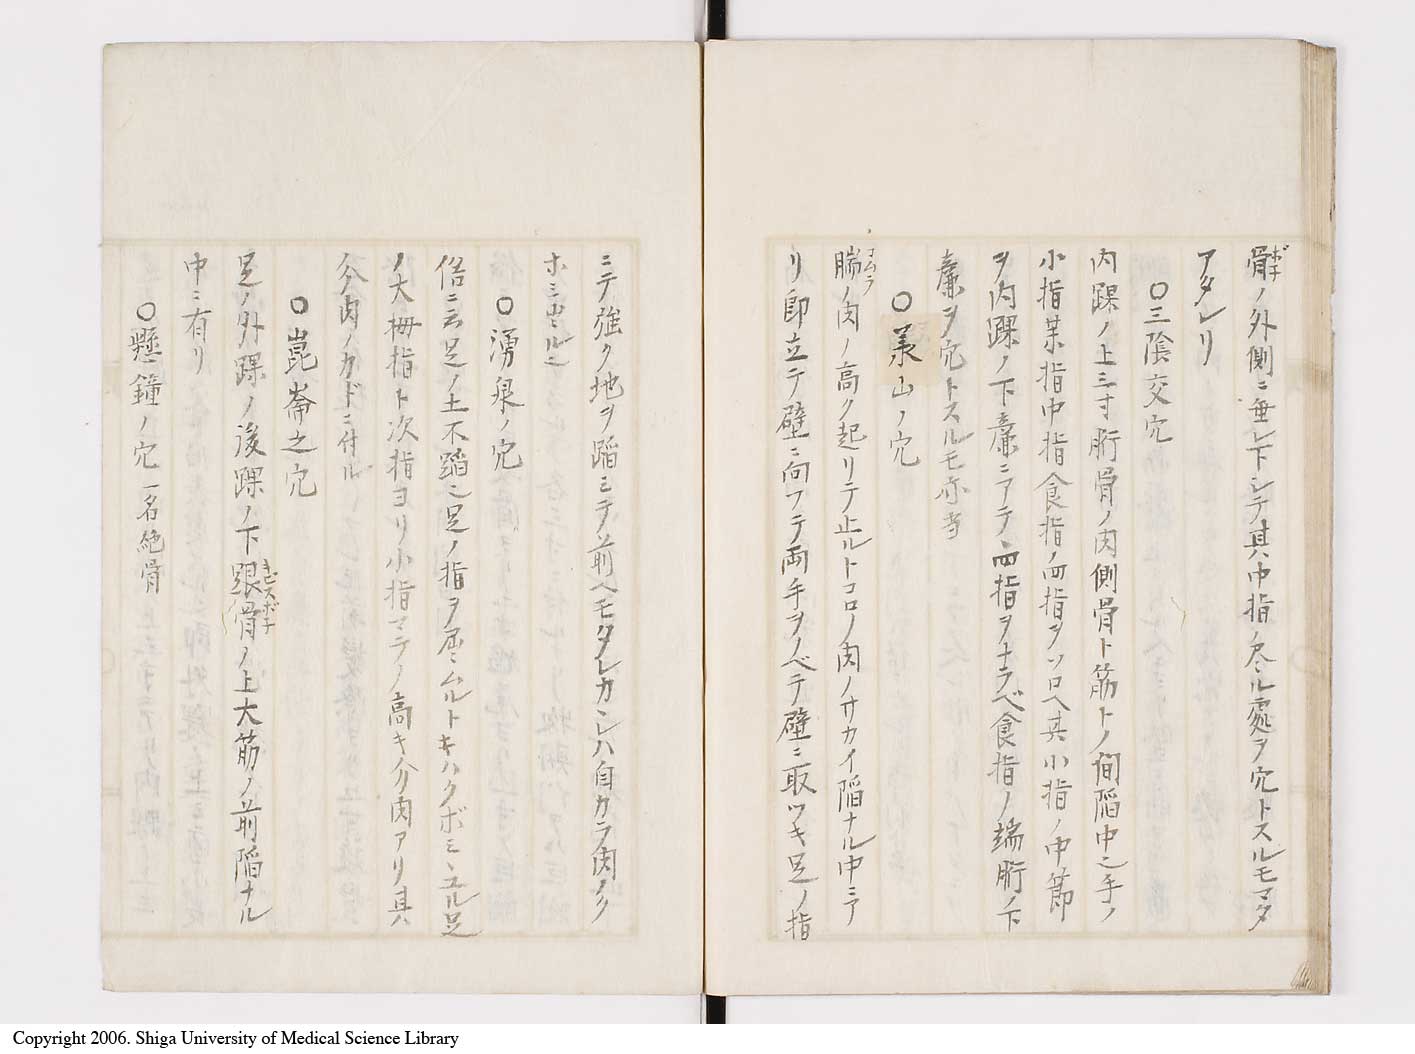 骨ノ外側ニ垂レ下シテ其中指ノ尽ル處ヲ穴トスルモマタ
ボネ
アタレリ
〇三陰交穴
内踝ノ上三寸胻骨ノ内側骨ト筋トノ間陥中也手ノ
小指葉指中指食指ノ四指ヲソロヘ其小指ノ中節
ヲ内踝ノ下廉ニアテ四指ヲナラベ食指ノ端胻ノ下
廉ヲ穴トスルモ亦
〇羕山ノ穴
腨ノ肉ノ高ク起リテ止ルトコロノ肉ノサカイ陥ナル中ニア
コムラ
リ即立テ壁ニ向フテ両手ヲノベテ壁ニ取ツキ足ノ指
ニテ強ク地ヲ蹈ミテ前ヘモタレカヽレハ自カラ肉ノク
ホミ出ルヿ
〇湧泉ノ穴
俗ニ云足ノ土不蹈也足ノ指ヲ屈ムルトキハクボミヽユル足
ノ大拇指ト次指ヨリ小指マテノ高キ分肉アリ其
分肉ノカドニ付ル
〇崑崙之穴
足ノ外踝ノ後踝ノ下跟骨ノ上大筋ノ前陥ナル
キビスボネ
中ニ有リ
〇懸鐘ノ穴 一名絶骨
Copyright 2006. Shiga University of Medical Science Library